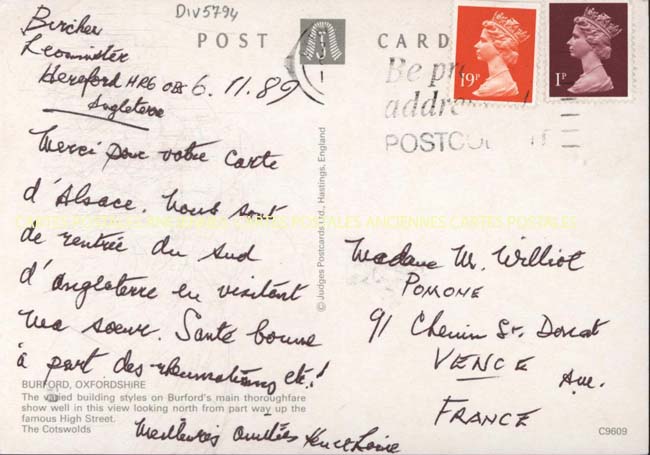 DIV5794
POST CARD
Bircher
Leominster
Hereford HR6 0BB 6.11.89
Angleterre
Merci pour votre carte
d'Alsace. Nous sont
de rentrée du sud
d'angleterre en visitant
ma soeur. Santé bonne
à part des rheumatisms etc!
Meilleures Amitiés
BURFORD, OXFORDSHIRE
The varied building styles on Burford's main thoroughfare
show well in this view looking north from part way up the
famous High Street.
The Cotswolds
© Judges Postcards Ltd., Hastings, England
19P
1P
Be
POSTCODE
CARTES POSTALES ANCIENNES CARTES POSTALES ANCIENNES CARTES POSTALES
Madame M. Williot
POMONE
91 Chemin St. Donat
VENCE
Ave.
FRANCE
C9609